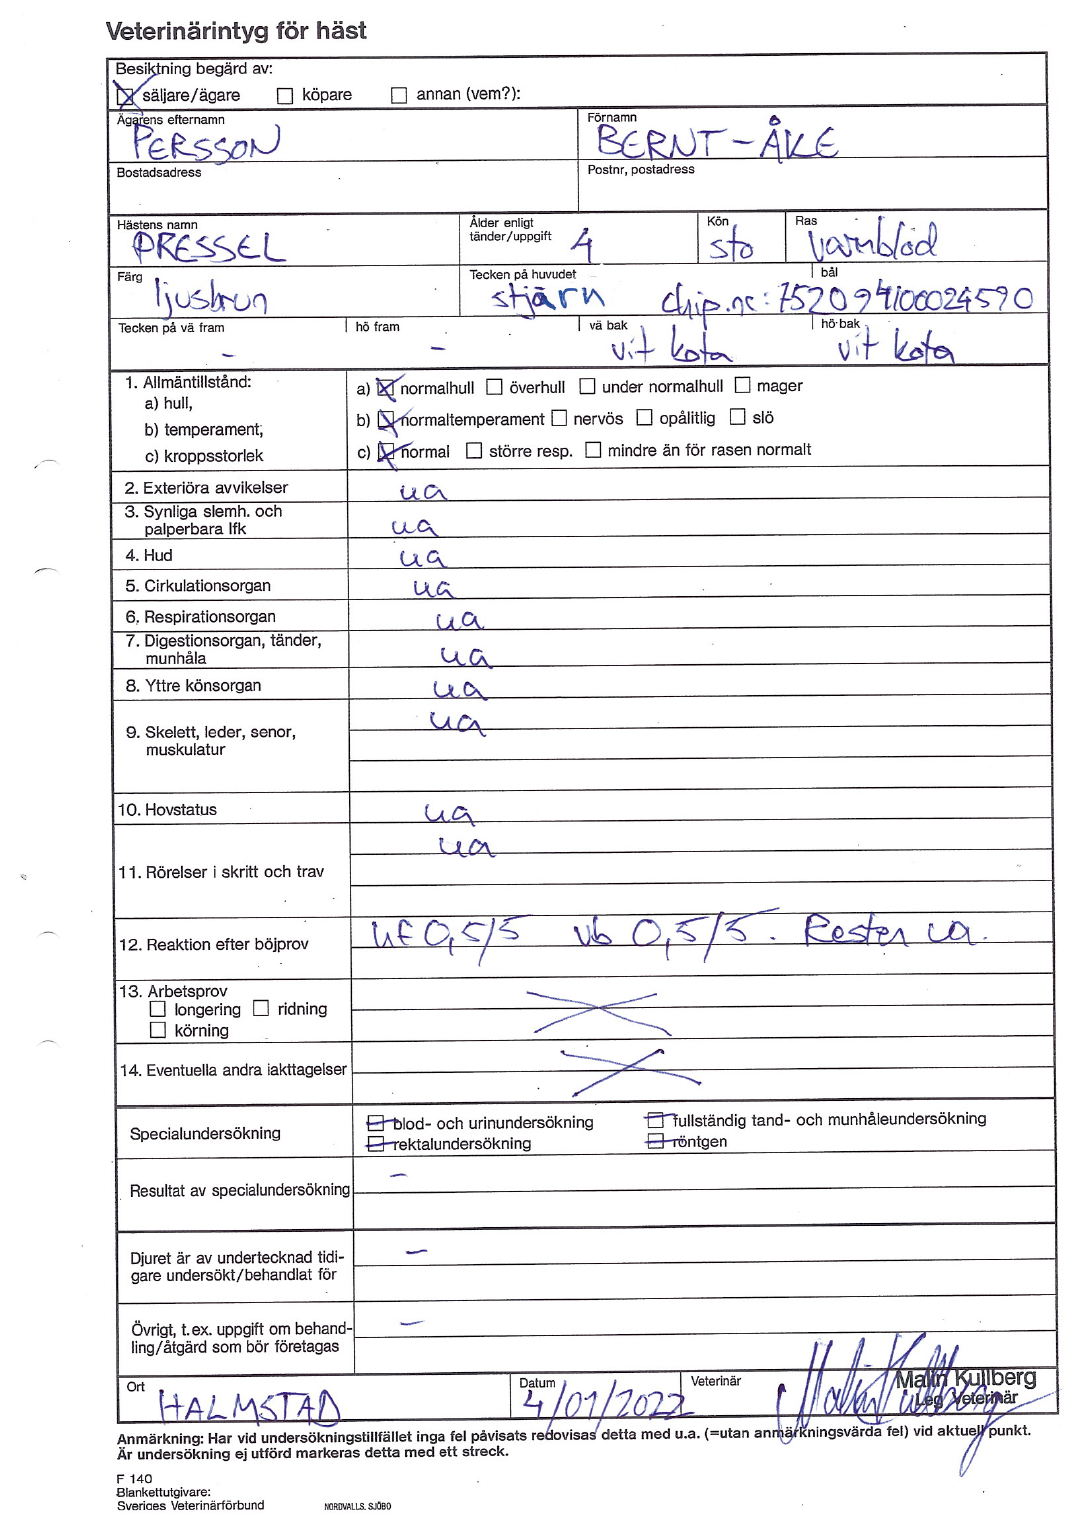 Veterinärintyg för häst
Besiktning begärd av:
säljare/ägare köpare annan (vem?):
Ägarens efternamn Förnamn
PERSSON BERNT-ÅKE
Bostadsadress Postnr, postadress
Hästens namn Ålder enligt tänder/uppgift Kön Ras
PRESSEL 4 sto varmblod
Färg Tecken på huvudet bål
ljusbrun stjärn chip.nr: 752094100024590
Tecken på vä fram hö fram vä bak hö bak
- - vit kota vit kota
1. Allmäntillstånd:
a) hull, a) normalhull överhull under normalhull mager
b) temperament, b) normaltemperament nervös opålitlig slö
c) kroppsstorlek c) normal större resp. mindre än för rasen normalt
2. Exteriöra avvikelser ua
3. Synliga slemh. och
palperbara lfk ua
4. Hud ua
5. Cirkulationsorgan ua
6. Respirationsorgan ua
7. Digestionsorgan, tänder,
munhåla ua
8. Yttre könsorgan ua
9. Skelett, leder, senor, ua
muskulatur
10. Hovstatus ua
11. Rörelser i skritt och trav ua
12. Reaktion efter böjprov hf 0,5/5 vb 0,5/5. Resten ua.
13. Arbetsprov
longering ridning
körning
14. Eventuella andra iakttagelser
Specialundersökning blod- och urinundersökning fullständig tand- och munhåleundersökning
rektalundersökning röntgen
Resultat av specialundersökning -
Djuret är av undertecknad tidi- -
gare undersökt/behandlat för
Övrigt, t.ex. uppgift om behand- -
ling/åtgärd som bör företagas
Ort Datum Veterinär Malin Kullberg
HALMSTAD 4/01/2022 Leg Veterinär
Anmärkning: Har vid undersökningstillfället inga fel påvisats redovisas detta med u.a. (=utan anmärkningsvärda fel) vid aktuell punkt.
Är undersökning ej utförd markeras detta med ett streck.
F 140
Blankettutgivare:
Sveriges Veterinärförbund NORDVALLS, SJÖBO